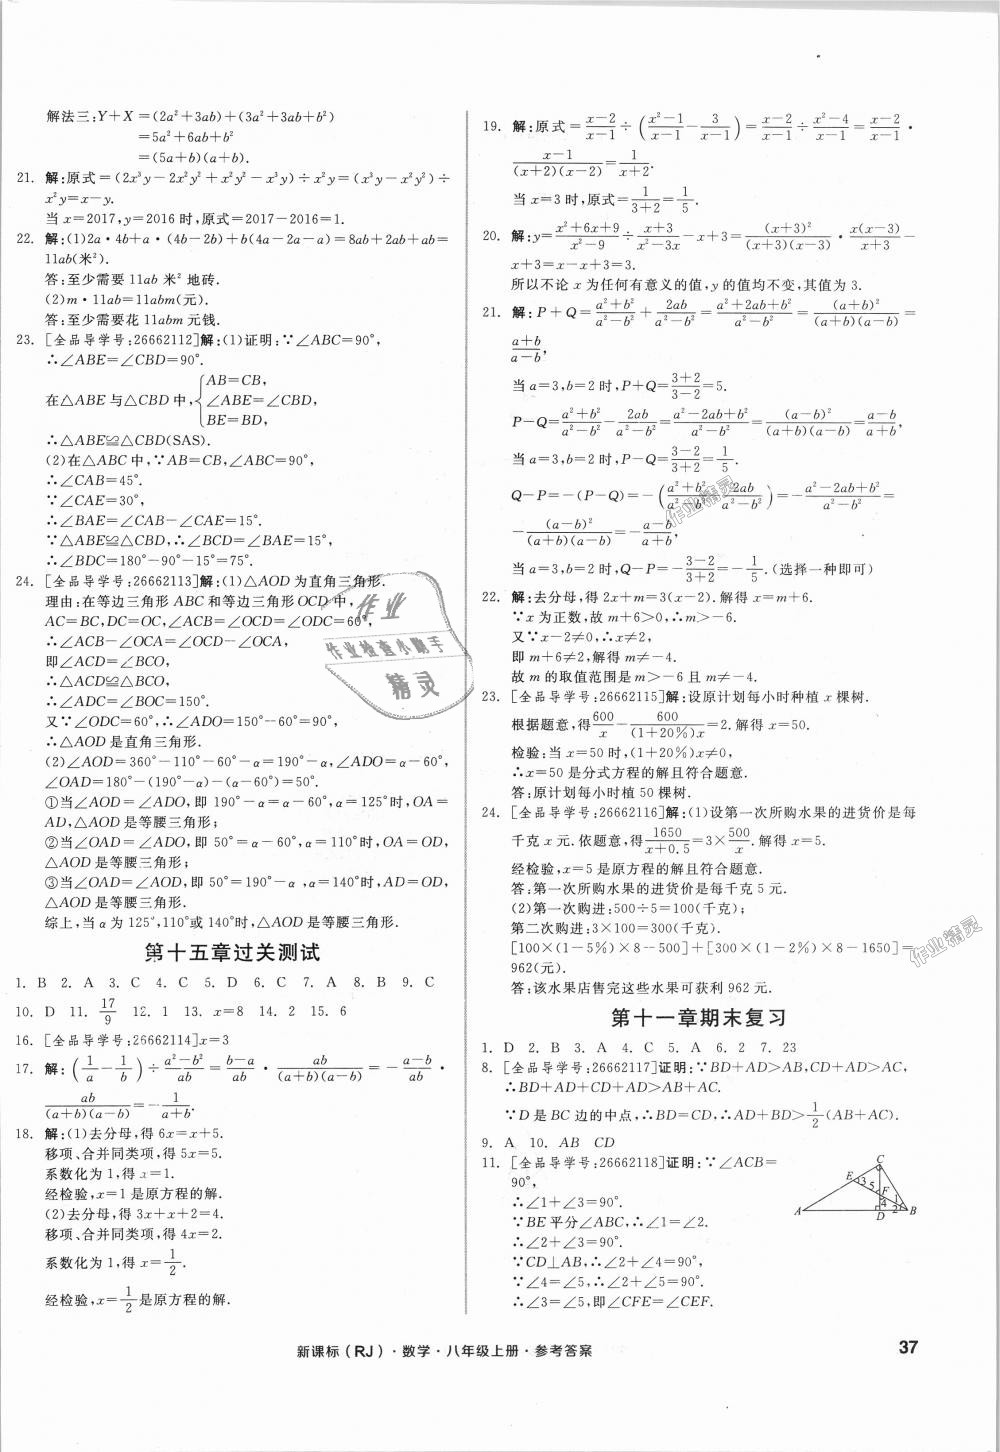 解法三:Y+X=(2a²+3ab)+(3a²+3ab+b²)
=5a²+6ab+b²
=(5a+b)(a+b).
21. 解:原式=(2x³y-2x²y²+x²y²-x³y)÷x²y=(x³y-x²y²)÷
x²y=x-y.
当x=2017,y=2016时,原式=2017-2016=1.
22. 解:(1)2a·4b+a·(4b-2b)+b(4a-2a-a)=8ab+2ab+ab=
11ab(米²).
答:至少需要11ab米²地砖.
(2)m·11ab=11abm(元).
答:至少需要花11abm元钱.
23. [全品导学号:26662112]解:(1)证明:∵∠ABC=90°,
∴∠ABE=∠CBD=90°.
在△ABE与△CBD中,{AB=CB,
∠ABE=∠CBD,
BE=BD,
∴△ABE≌△CBD(SAS).
(2)在△ABC中,∵AB=CB,∠ABC=90°,
∴∠CAB=45°.
∵∠CAE=30°,
∴∠BAE=∠CAB-∠CAE=15°.
∵△ABE≌△CBD,∴∠BCD=∠BAE=15°,
∴∠BDC=180°-90°-15°=75°.
24. [全品导学号:26662113]解:(1)△AOD为直角三角形.
理由:在等边三角形ABC和等边三角形OCD中,
AC=BC,DC=OC,∠ACB=∠OCD=∠ODC=60°,
∴∠ACB-∠OCA=∠OCD-∠OCA,
即∠ACD=∠BCO,
∴△ACD≌△BCO,
∴∠ADC=∠BOC=150°.
又∵∠ODC=60°,∴∠ADO=150°-60°=90°,
∴△AOD是直角三角形.
(2)∠AOD=360°-110°-60°-α=190°-α,∠ADO=α-60°,
∠OAD=180°-(190°-α)-(α-60°)=50°.
①当∠AOD=∠ADO,即190°-α=α-60°,α=125°时,OA=
AD,△AOD是等腰三角形;
②当∠OAD=∠ADO,即50°=α-60°,α=110°时,OA=OD,
△AOD是等腰三角形;
③当∠OAD=∠AOD,即50°=190°-α,α=140°时,AD=OD,
△AOD是等腰三角形.
综上,当α为125°,110°或140°时,△AOD是等腰三角形.
第十五章过关测试
1. B 2. A 3. C 4. C 5. D 6. C 7. A 8. B 9. C
10. D 11. 17/9 12. 1 13. x=8 14. 2 15. 6
16. [全品导学号:26662114]x=3
17. 解:(1/a-1/b)÷(a²-b²)/ab=(b-a)/ab·ab/((a+b)(a-b))=-(a-b)/ab·
ab/((a+b)(a-b))=-1/(a+b).
18. 解:(1)去分母,得6x=x+5.
移项、合并同类项,得5x=5.
系数化为1,得x=1.
经检验,x=1是原方程的解.
(2)去分母,得3x+x+2=4.
移项、合并同类项,得4x=2.
系数化为1,得x=1/2.
经检验,x=1/2是原方程的解.
19. 解:原式=(x-2)/(x-1)÷((x²-1)/(x-1)-3/(x-1))=(x-2)/(x-1)÷(x²-4)/(x-1)=(x-2)/(x-1)·
(x-1)/((x+2)(x-2))=1/(x+2).
当x=3时,原式=1/(3+2)=1/5.
20. 解:y=(x²+6x+9)/(x²-9)÷(x+3)/(x²-3x)-x+3=(x+3)²/((x+3)(x-3))·x(x-3)/(x+3)-
x+3=x-x+3=3.
所以不论x为任何有意义的值,y的值均不变,其值为3.
21. 解:P+Q=(a²+b²)/(a²-b²)+2ab/(a²-b²)=(a²+2ab+b²)/(a²-b²)=(a+b)²/((a+b)(a-b))=
(a+b)/(a-b),
当a=3,b=2时,P+Q=(3+2)/(3-2)=5.
P-Q=(a²+b²)/(a²-b²)-2ab/(a²-b²)=(a²-2ab+b²)/(a²-b²)=(a-b)²/((a+b)(a-b))=(a-b)/(a+b),
当a=3,b=2时,P-Q=(3-2)/(3+2)=1/5.
Q-P=-(P-Q)=-((a²+b²)/(a²-b²)-2ab/(a²-b²))=-(a²-2ab+b²)/(a²-b²)=
-(a-b)²/((a+b)(a-b))=-(a-b)/(a+b),
当a=3,b=2时,Q-P=-(3-2)/(3+2)=-1/5.(选择一种即可)
22. 解:去分母,得2x+m=3(x-2).解得x=m+6.
∵x为正数,故m+6>0,∴m>-6.
又∵x-2≠0,∴x≠2,
即m+6≠2,解得m≠-4.
故m的取值范围是m>-6且m≠-4.
23. [全品导学号:26662115]解:设原计划每小时种植x棵树.
根据题意,得600/x-600/((1+20%)x)=2.解得x=50.
检验:当x=50时,(1+20%)x≠0,
∴x=50是分式方程的解且符合题意.
答:原计划每小时植50棵树.
24. [全品导学号:26662116]解:(1)设第一次所购水果的进货价是每
千克x元.依题意,得1650/(x+0.5)=3×500/x.解得x=5.
经检验,x=5是原方程的解且符合题意.
答:第一次所购水果的进货价是每千克5元.
(2)第一次购进:500÷5=100(千克);
第二次购进:3×100=300(千克).
[100×(1-5%)×8-500]+[300×(1-2%)×8-1650]=
962(元).
答:该水果店售完这些水果可获利962元.
第十一章期末复习
1. D 2. B 3. A 4. C 5. A 6. 2 7. 23
8. [全品导学号:26662117]证明:∵BD+AD>AB,CD+AD>AC,
∴BD+AD+CD+AD>AB+AC.
∵D是BC边的中点,∴BD=CD,∴AD+BD>1/2(AB+AC).
9. A 10. AB CD
11. [全品导学号:26662118]证明:∵∠ACB=
90°,
∴∠1+∠3=90°.
∵BE平分∠ABC,∴∠1=∠2.
∴∠2+∠3=90°.
∵CD⊥AB,∴∠2+∠4=90°,
∵∠4=∠5,∴∠2+∠5=90°.
∴∠3=∠5,即∠CFE=∠CEF.
C
E 3 5 F
4 1
2
A D B
作业
作业检查小助手
精灵
作业精灵
作业精灵
新课标(RJ)·数学·八年级上册·参考答案
37